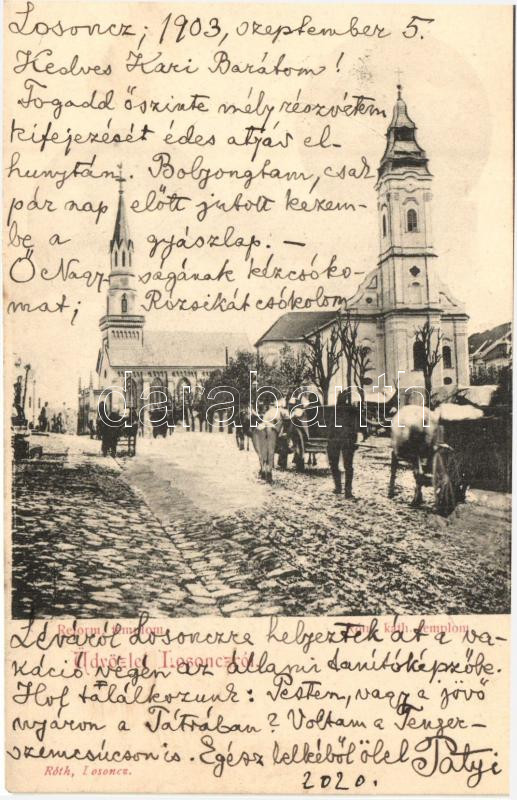 Losoncz; 1903, szeptember 5.
Kedves Kari Barátom!
Fogadd őszinte mély részvétem
kifejezését édes atyád el-
hunytán. Bolyongtam, csak
pár nap előtt jutott kezem-
be a gyászlap. —
Ő Nagyságának kézcsóko-
mat; Rózsikát csókolom
darabanth.com
Reform. templom
Róm. kath. templom
Üdvözlet Losonczról
Léváról Losonczra helyeztek át a va-
káció végén az állami tanítóképzőbe.
Hol találkozunk: Pesten, vagy a jövő
nyáron a Tátrában? Voltam a Tenger-
szemcsúcson is. Egész lelkéből ölel Patyi
2020.
Róth, Losoncz.